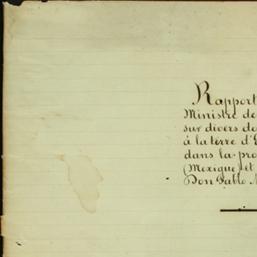 Rapport
Ministre de
sur divers do
à la terre d'
dans la pro
(Mexique) et
Don Pablo